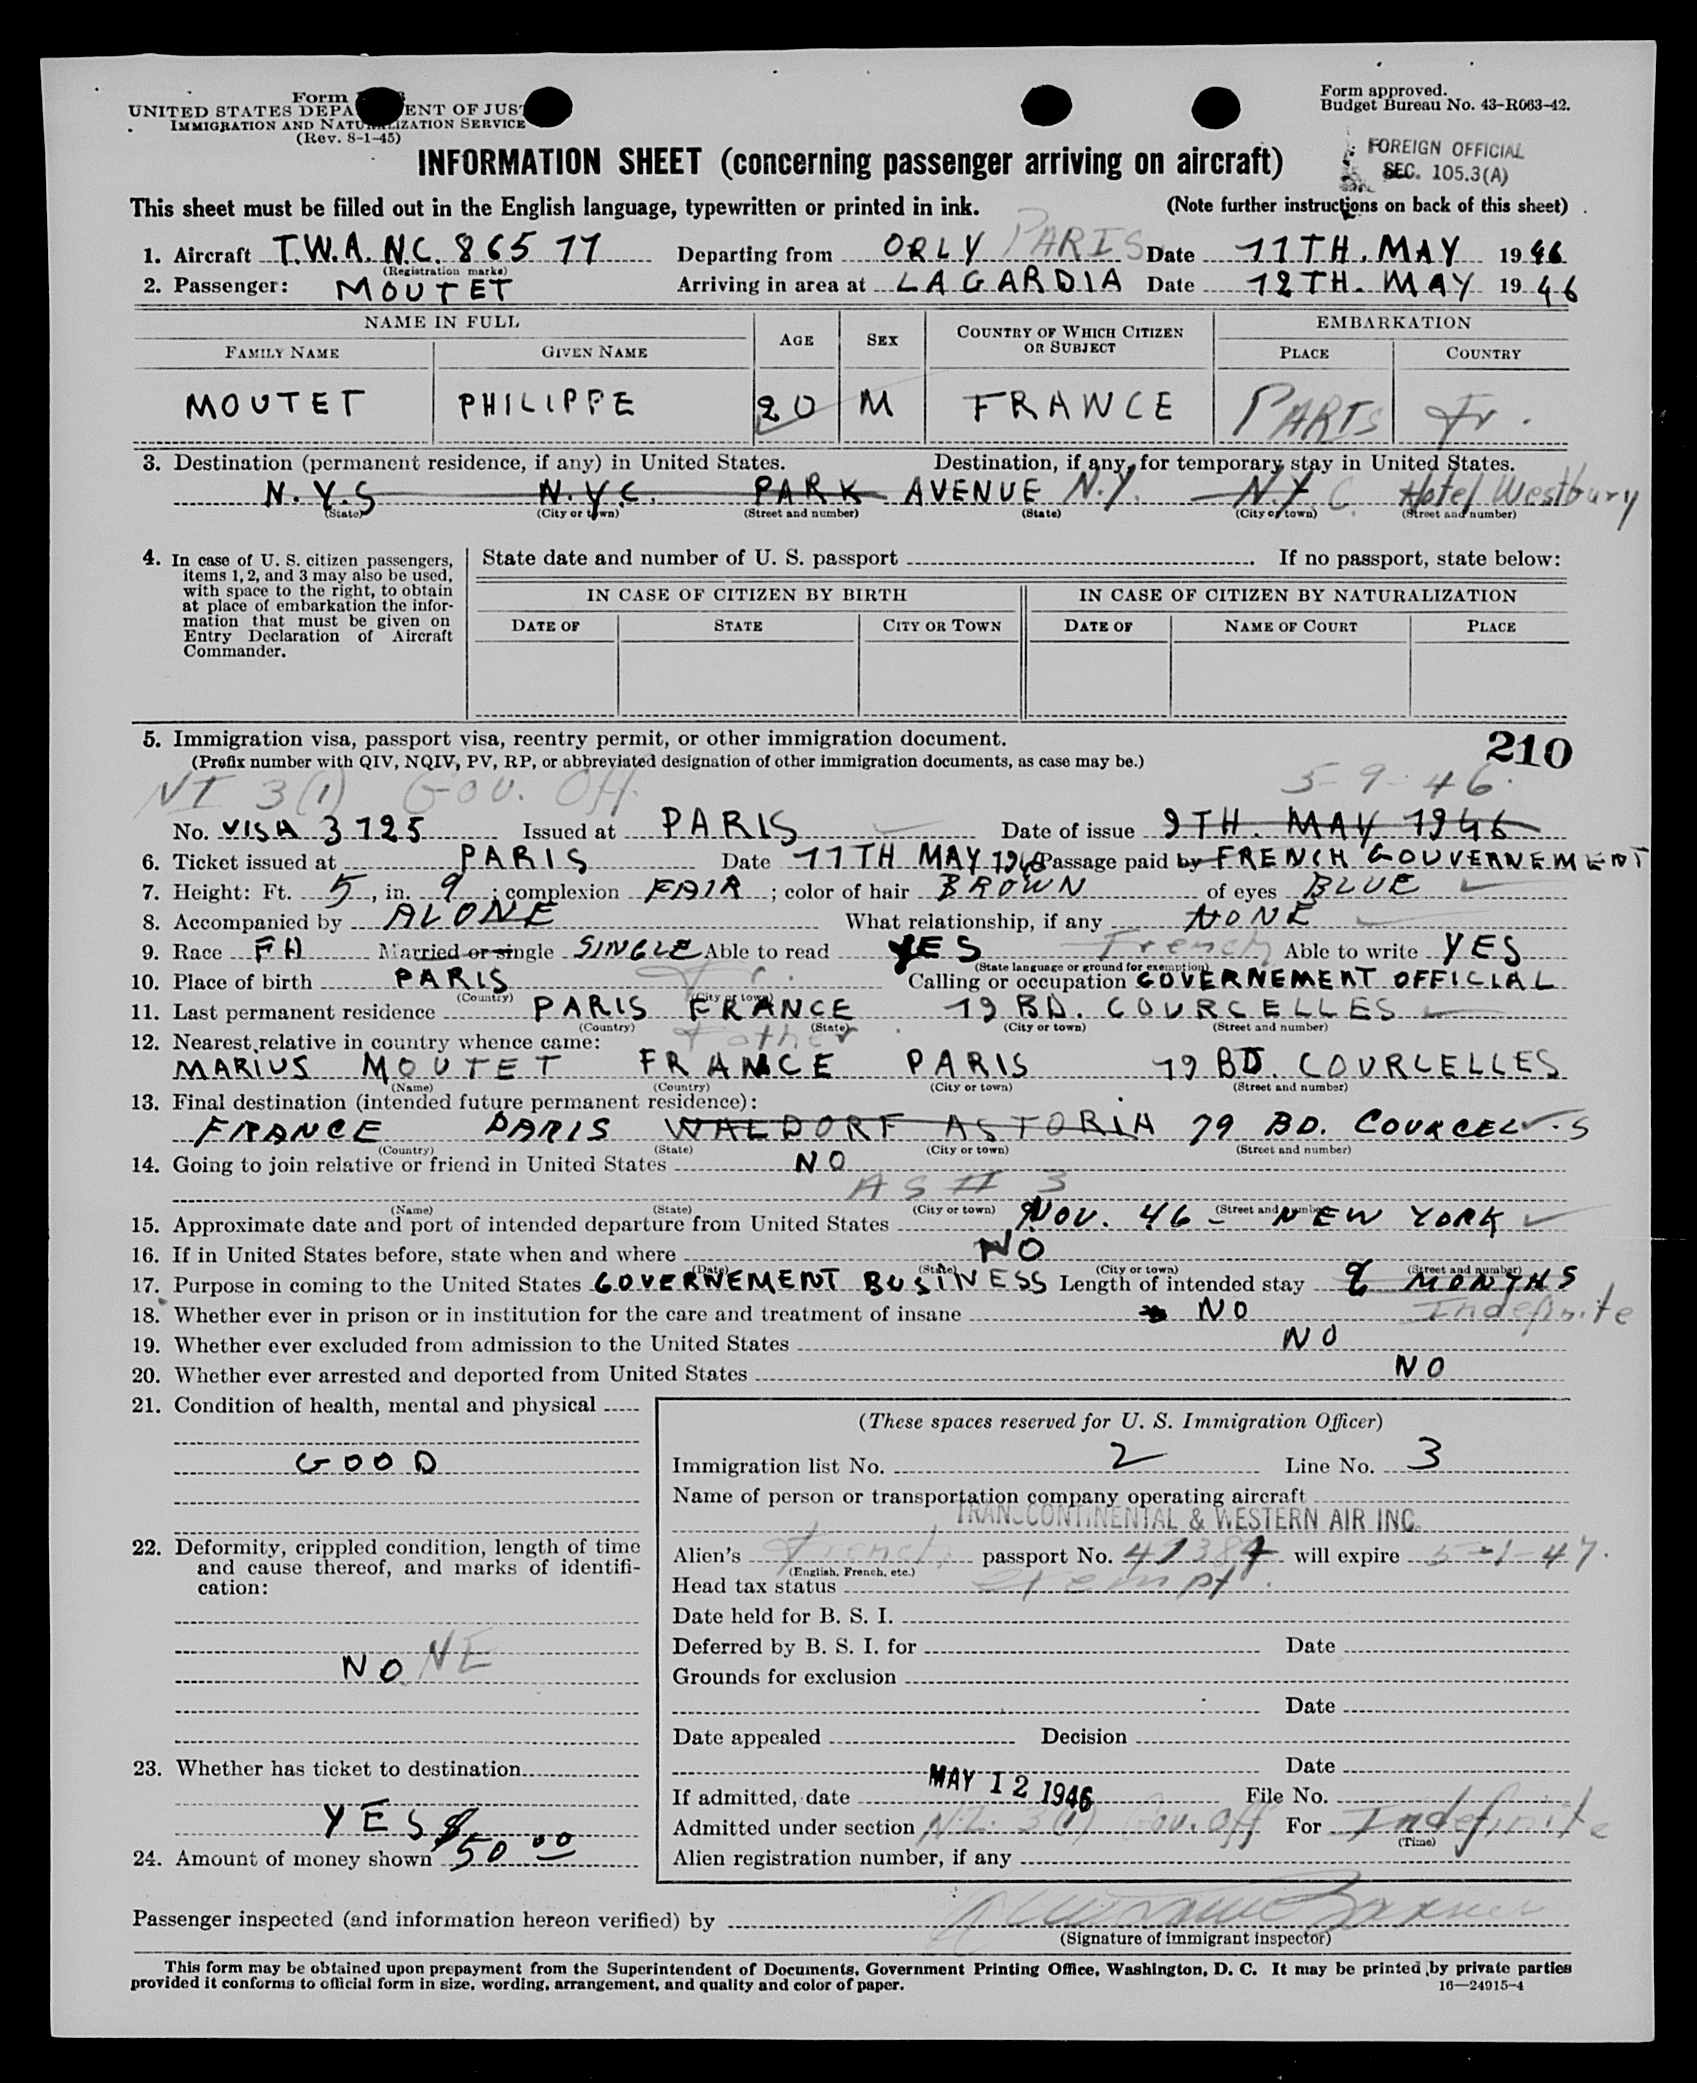 Form
UNITED STATES DEPA ENT OF JUS
IMMIGRATION AND NATURALIZATION SERVICE
(Rev. 8-1-45)
Form approved.
Budget Bureau No. 43-R063-42.
FOREIGN OFFICIAL
SEC. 105.3(A)
INFORMATION SHEET (concerning passenger arriving on aircraft)
This sheet must be filled out in the English language, typewritten or printed in ink. (Note further instructions on back of this sheet)
1. Aircraft T.W.A. N.C. 86511 Departing from ORLY PARIS Date 11TH. MAY 1946
(Registration marks)
2. Passenger: MOUTET Arriving in area at LAGARDIA Date 12TH. MAY 1946
NAME IN FULL AGE SEX COUNTRY OF WHICH CITIZEN OR SUBJECT EMBARKATION
FAMILY NAME GIVEN NAME PLACE COUNTRY
MOUTET PHILIPPE 20 M FRANCE PARIS Fr.
3. Destination (permanent residence, if any) in United States. Destination, if any, for temporary stay in United States.
N.Y.S N.Y.C. PARK AVENUE N.Y. N.Y.C. Hotel Westbury
(State) (City or town) (Street and number) (State) (City or town) (Street and number)
4. In case of U. S. citizen passengers, items 1, 2, and 3 may also be used, with space to the right, to obtain at place of embarkation the information that must be given on Entry Declaration of Aircraft Commander.
State date and number of U. S. passport If no passport, state below:
IN CASE OF CITIZEN BY BIRTH IN CASE OF CITIZEN BY NATURALIZATION
DATE OF STATE CITY OR TOWN DATE OF NAME OF COURT PLACE
5. Immigration visa, passport visa, reentry permit, or other immigration document. 210
(Prefix number with QIV, NQIV, PV, RP, or abbreviated designation of other immigration documents, as case may be.)
NI 3(1) Gov. Off. 5-9-46.
No. VISA 3125 Issued at PARIS Date of issue 9TH. MAY 1946
6. Ticket issued at PARIS Date 11TH MAY 1946 Passage paid by FRENCH GOUVERNEMENT
7. Height: Ft. 5, in. 9; complexion FAIR; color of hair BROWN of eyes BLUE
8. Accompanied by ALONE What relationship, if any NONE
9. Race FH Married or single SINGLE Able to read YES French Able to write YES
(State language or ground for exemption)
10. Place of birth PARIS Fr. Calling or occupation GOVERNEMENT OFFICIAL
(Country) (City or town)
11. Last permanent residence PARIS FRANCE 19 BD. COURCELLES
(Country) (State) (City or town) (Street and number)
12. Nearest relative in country whence came: Father
MARIUS MOUTET FRANCE PARIS 19 BD. COURCELLES
(Name) (Country) (City or town) (Street and number)
13. Final destination (intended future permanent residence):
FRANCE PARIS WALDORF ASTORIA 79 BD. COURCEL S
(Country) (State) (City or town) (Street and number)
14. Going to join relative or friend in United States NO
AS # 3
(Name) (State) (City or town) (Street and number)
15. Approximate date and port of intended departure from United States NOV. 46 - NEW YORK
16. If in United States before, state when and where NO
(Date) (State) (City or town) (Street and number)
17. Purpose in coming to the United States GOVERNEMENT BUSINESS Length of intended stay MONTHS
18. Whether ever in prison or in institution for the care and treatment of insane NO Indefinite
19. Whether ever excluded from admission to the United States NO
20. Whether ever arrested and deported from United States NO
21. Condition of health, mental and physical
GOOD
22. Deformity, crippled condition, length of time and cause thereof, and marks of identification:
NONE
23. Whether has ticket to destination
YES
24. Amount of money shown $50.00
(These spaces reserved for U. S. Immigration Officer)
Immigration list No. 2 Line No. 3
Name of person or transportation company operating aircraft
TRANSCONTINENTAL & WESTERN AIR INC.
Alien's French passport No. 41384 will expire 5-1-47.
(English, French, etc.)
Head tax status exempt.
Date held for B. S. I.
Deferred by B. S. I. for Date
Grounds for exclusion
Date
Date appealed Decision
Date
If admitted, date MAY 12 1946 File No.
Admitted under section 3(1) Gov. Off For Indefinite
(Time)
Alien registration number, if any
Passenger inspected (and information hereon verified) by
(Signature of immigrant inspector)
This form may be obtained upon prepayment from the Superintendent of Documents, Government Printing Office, Washington, D. C. It may be printed by private parties
provided it conforms to official form in size, wording, arrangement, and quality and color of paper. 16—24915-4